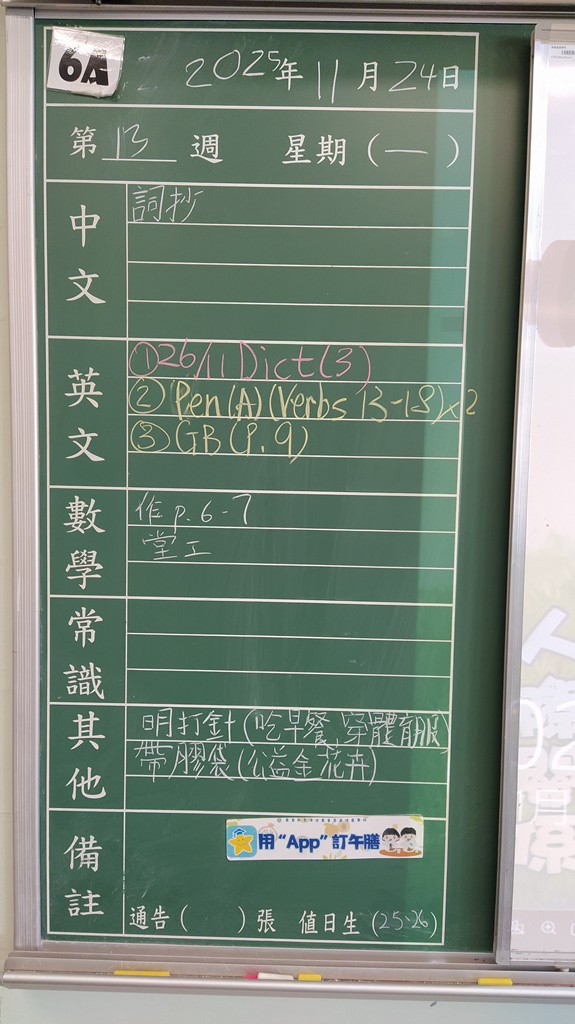 6A
2025年11月24日
第13週 星期(一)
中文
詞抄
英文
①26/11 Dict(3)
②Pen(A)(Verbs 13-18)x2
③GB(P.9)
數學
作p.6-7
堂工
常識
其他
明打針(吃早餐,穿體育服)
帶膠袋(公益金花卉)
備註
用“App”訂午膳
通告( )張 值日生(25、26)